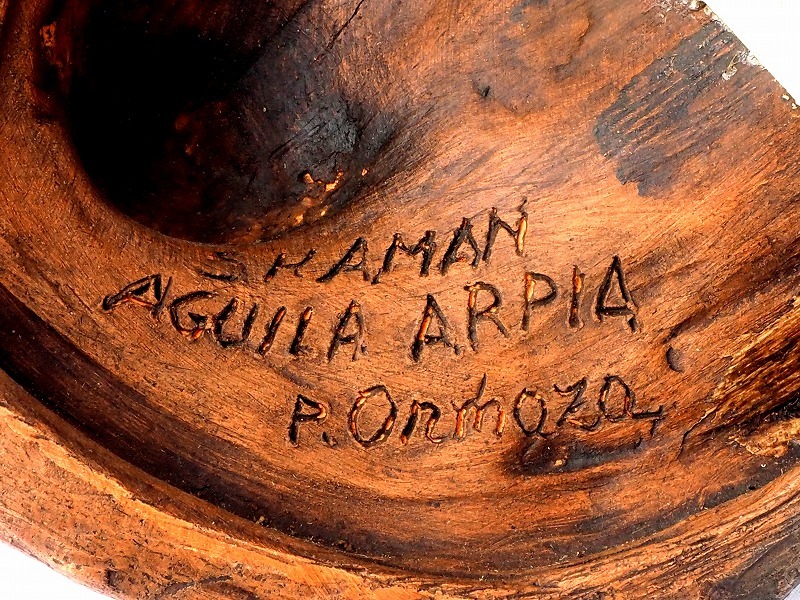 SHAMAN
AGUILA ARPIA
P. Ormoza